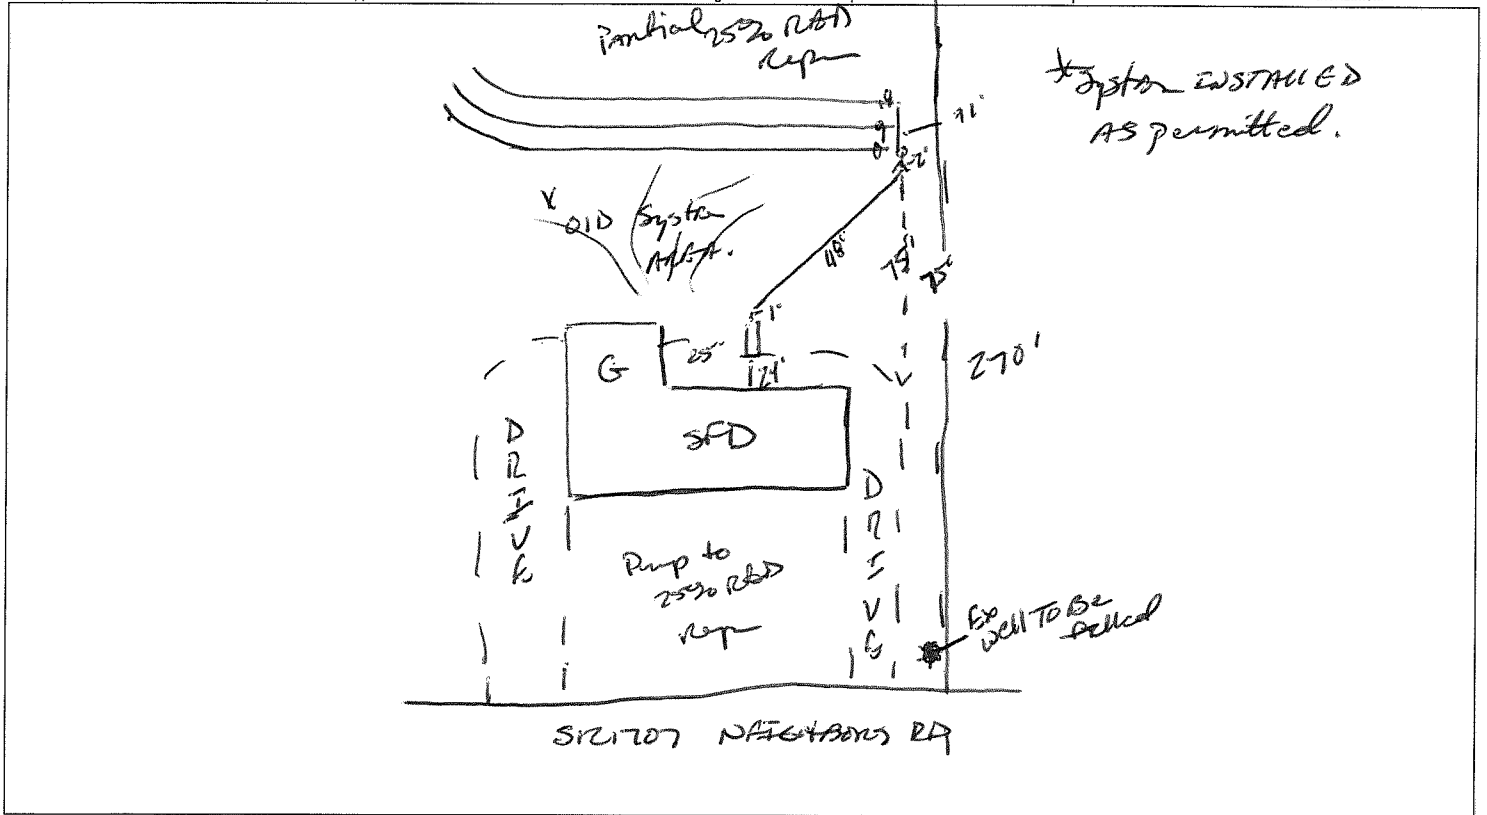 Partial 25% RED
Repair
*System INSTALLED
AS permitted.
VOID
System
AREA.
48'
75'
75'
270'
G
25'
24'
SFD
DRIVE
DRIVE
Pump to
25% RED
Repair
Ex
well To Be
SR1707 NEIGHBORS RD